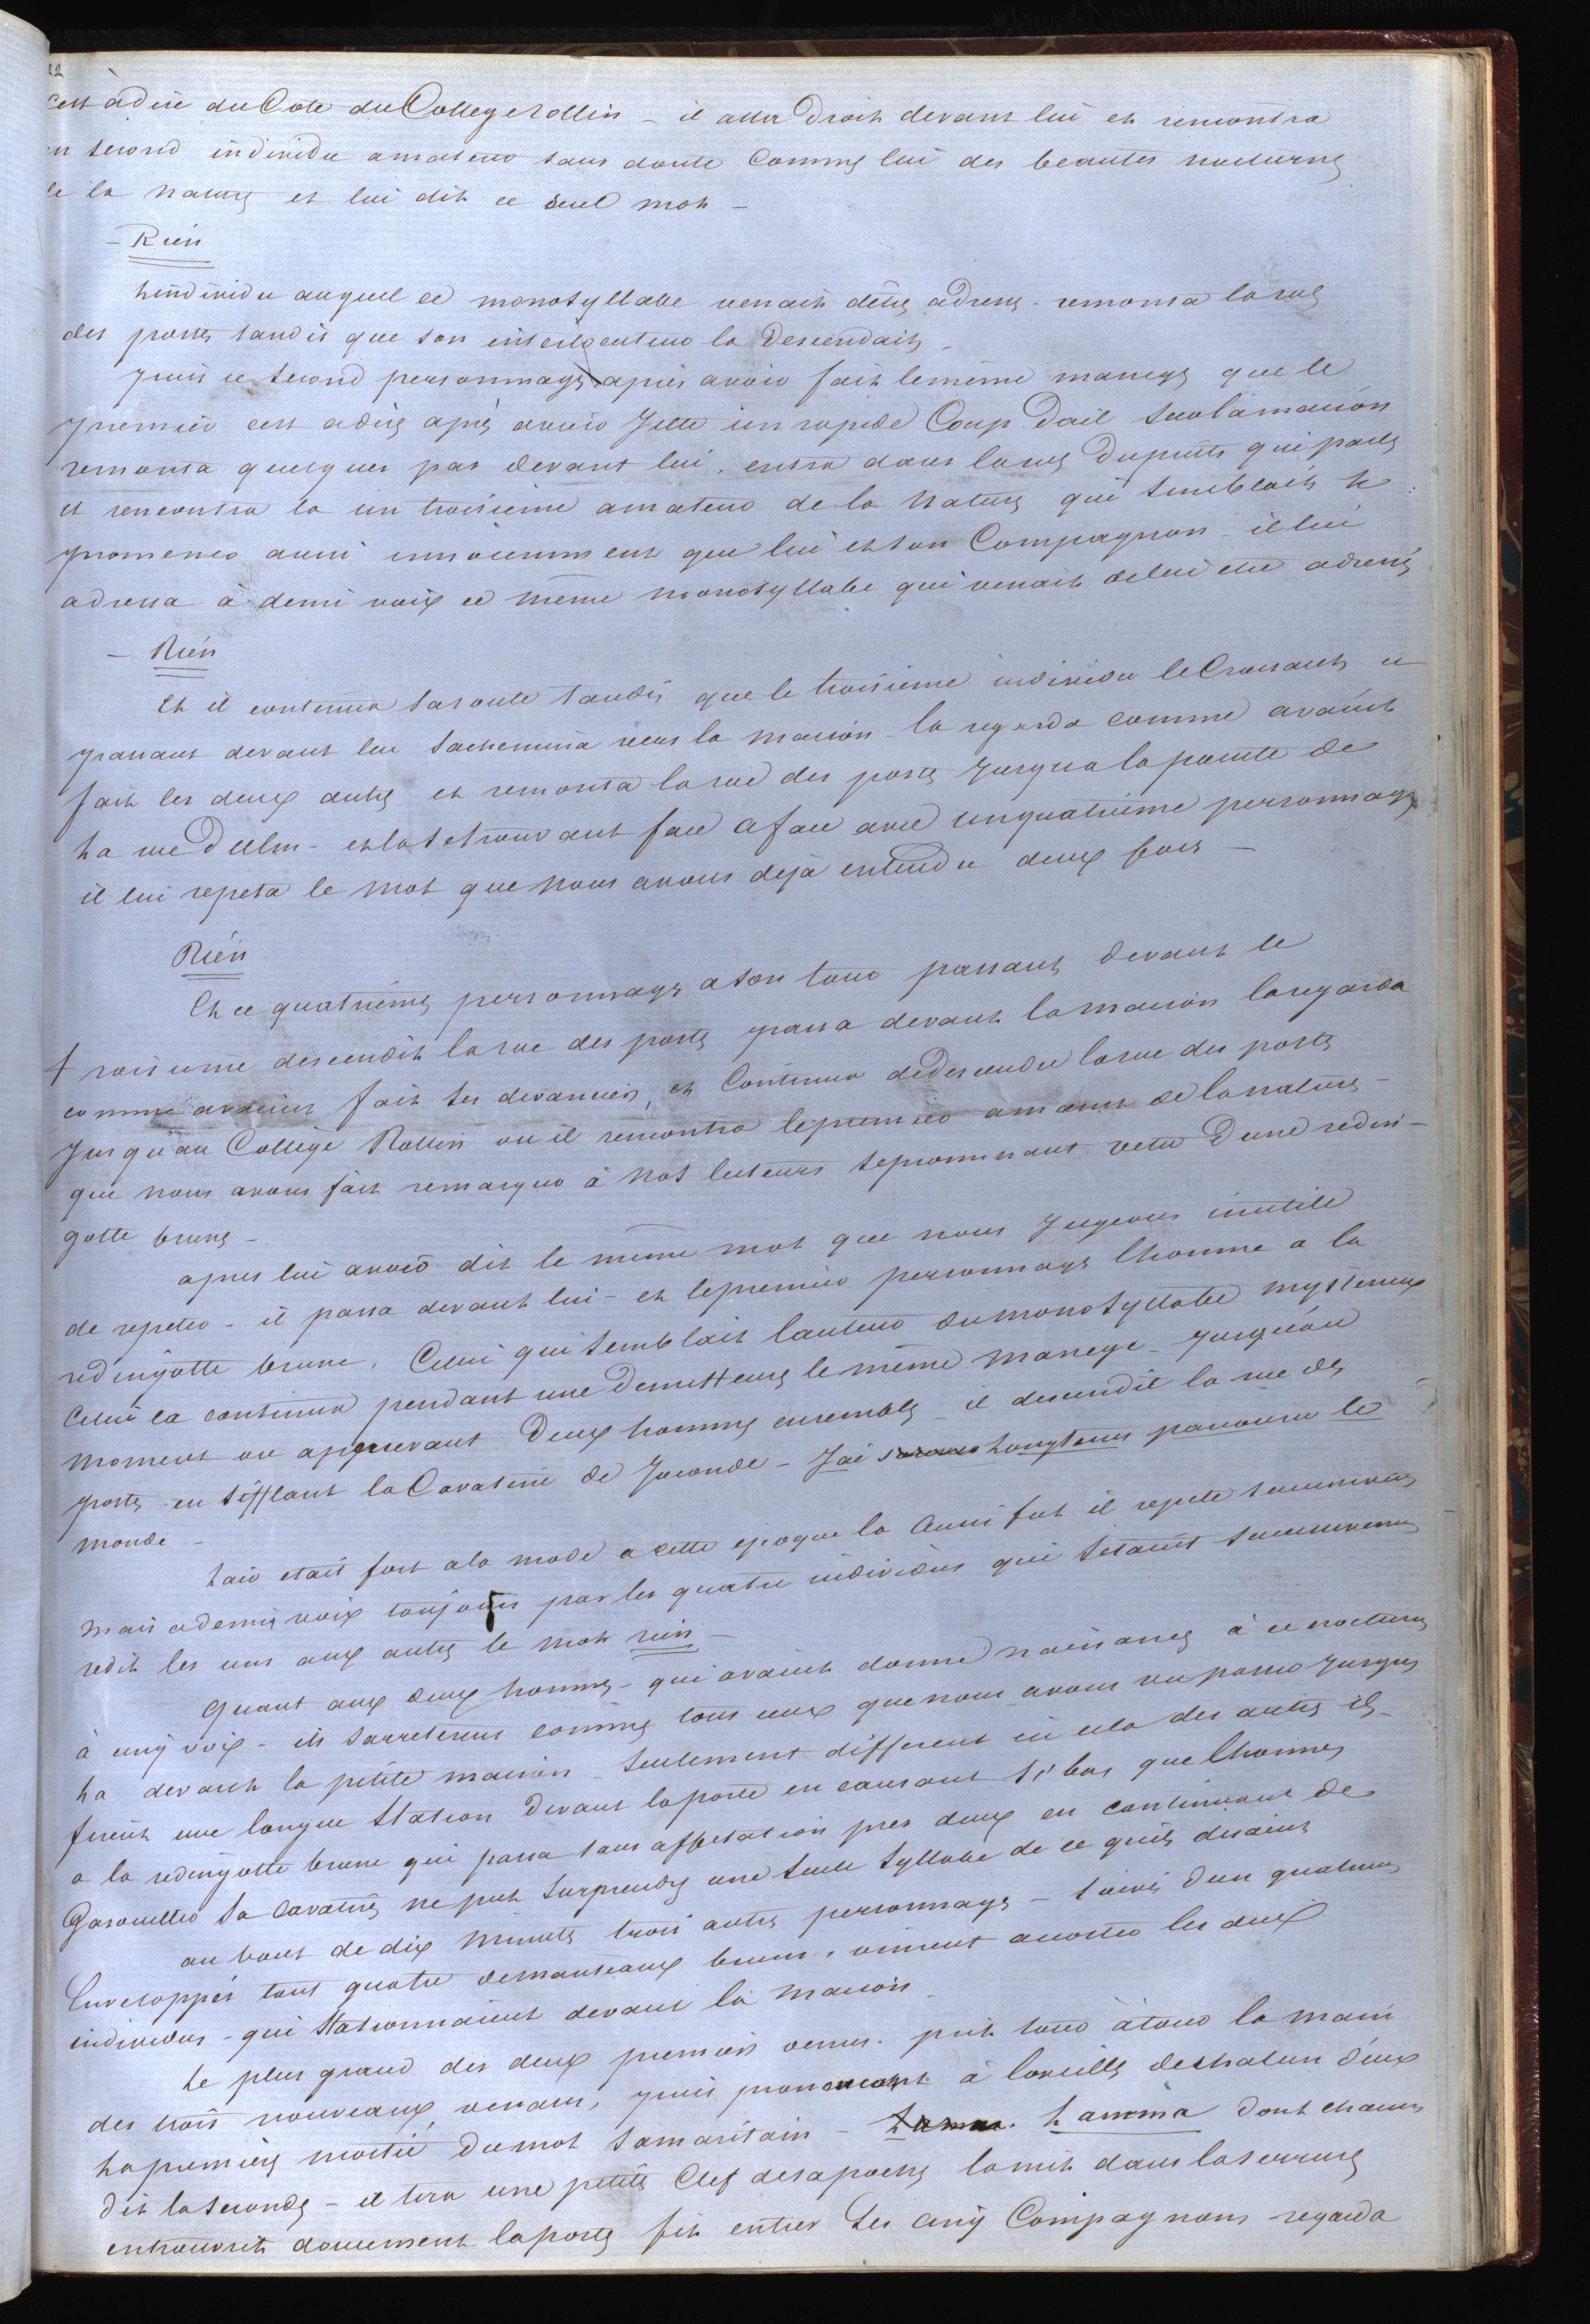 22
cest à dire du Coté du College rollin – il alla Droit devant lui et rencontra
un second individu amateur sans doute Comme lui des beautes nocturnes
de la nature et lui dit ce seul mot –
– Rien
Lindividu auquel ce monosyllabe venait detre adresse – remonta la rue
des postes tandis que son interlocuteur la Descendait –
puis ce second personnage apres avoir fait le même manege que le
premier cest adire après avoir Jetté un rapide Coup Dœil sur la maison
remonta quelques pas devant lui. entra dans la rue Dupuits qui parle
et rencontra la un troisieme amateur de la nature qui semblait se
promener aussi innocemment que lui et son Compagnon – il lui
adressa à demi voix ce même monosyllabe qui venait de lui etre adressé
– Rien
Et il continua sa route tandis que le troisieme individu le Croisant et
passant devant lui sachemina vers la maison – la regarda comme avaient
fait les deux autres et remonta la rue des postes Jusqua la pointe de
La rue Dulm – et la se trouvant face a face avec un quatrieme personnage
il lui repeta le mot que nous avons dejà entendu deux fois –
Rien
Et ce quatrième personnage a son tour passant devant le
troisieme descendit la rue des postes passa devant la maison la regarda
comme avaient fait ses devanciers, et Continua de descendre la rue des postes
Jusquau College Rollin ou il rencontra le premier amant de la nature –
que nous avons fait remarquer à nos lecteurs se promenant vetu Dune redin-
gotte brune –
apres lui avoir dit le meme mot que nous Jugeons inutile
de repeter – il passa devant lui – et le premier personnage lhomme a la
redingotte brune. Celui qui semblait lauteur du monosyllabe mysterieux
Celui la continua pendant une Demi heure le même manege – Jusquau
moment ou appercevant Deux hommes ensemble – il descendit la rue des
postes en sifflant la Cavatine de Joconde – Jai Longtems parcouru le
monde –
Lair etait fort a la mode a cette epoque la Aussi fut il repete successivement
mais a demi voix toujours par les quatre individus qui setaient successivement
redit les uns aux autres le mot rien –
Quant aux deux hommes – qui avaient donne naissance à ce nocturne
à cinq voix – ils sarreterent comme tous ceux que nous avons vu passer Jusque
La devant la petite maison – seulement different en cela des autres ils
firent une longue station Devant la porte en causant si bas que lhomme
a la redingotte brune qui passa sans affectation pres deux en continuant de
Gasouiller sa Cavatine ne put surprendre une seule syllabe de ce quils disaient
au bout de dix minutes trois autres personnages – suivis dun quatrieme
Enveloppés tous quatre de manteaux bruns, vinrent accoster les deux
individus – qui stationnaient devant la maison –
Le plus grand des deux premiers venus. prit tour à tour la main
des trois nouveaux venans, puis prononcant à loreille de chacun deux
La premiere moitié du mot samaritain – Lamma dont chacun
dit la seconde – il tira une petite Clef de sa poche la mit dans la serrure
entrouvrit doucement la porte fit entrer Les cinq Compagnons regarda